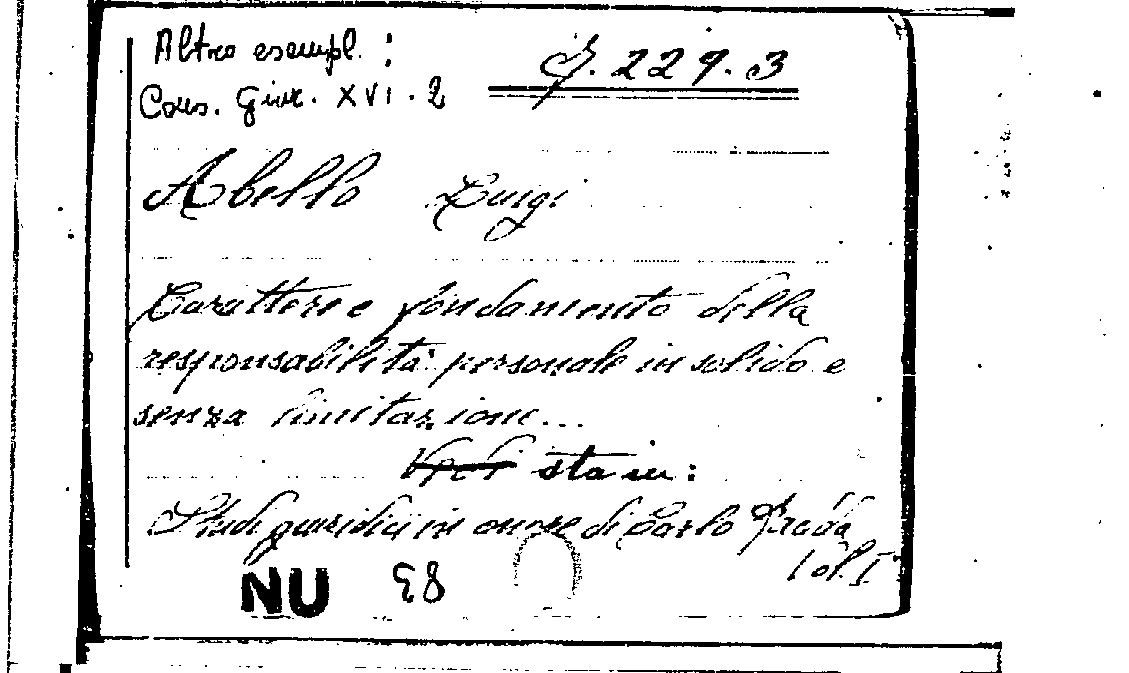 Altro esempl. :
Cons. Giur. XVI. 2
G. 229. 3
Abello Luigi
Carattere e fondamento della
responsabilità personale in solido e
senza limitazioni...
Vedi sta in:
Studi giuridici in onore di Carlo Fadda
Vol. I
NU 98